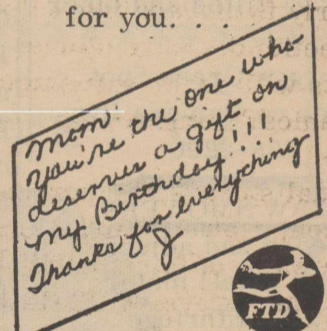 for you. . .
Mom
You're the one who
deserves a gift on
my Birthday!!!
Thanks for everything
J
FTD